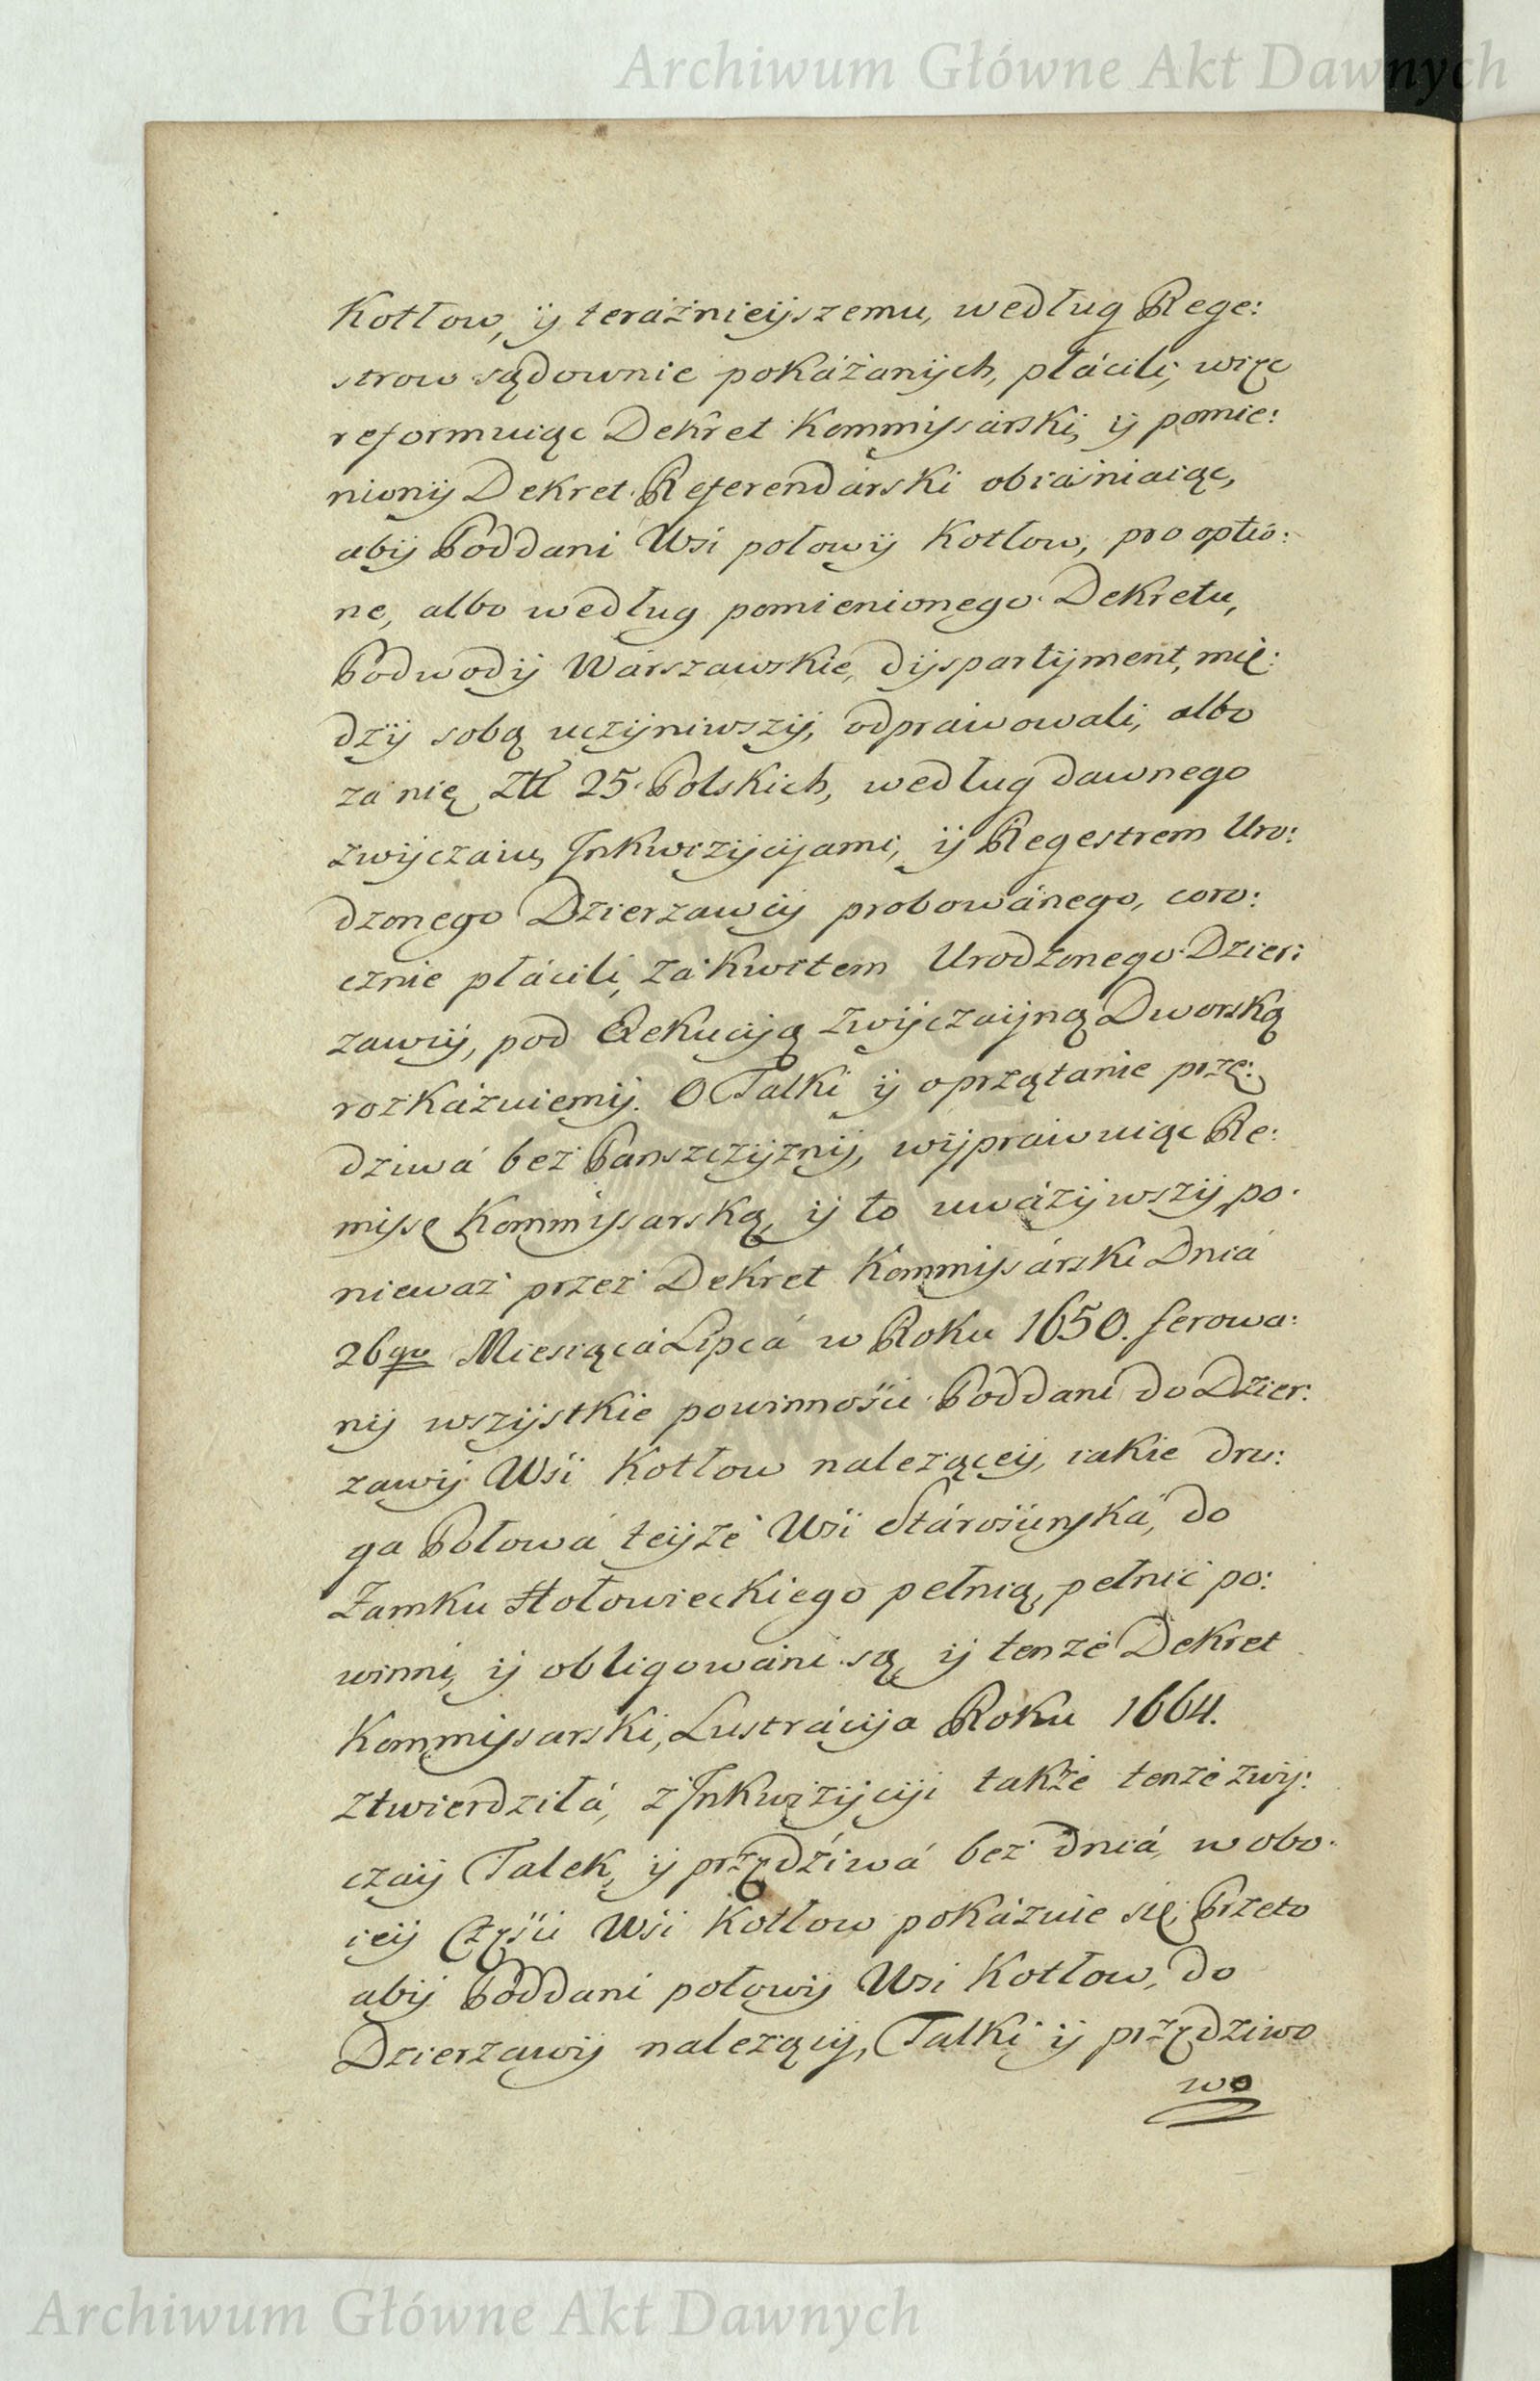 Archiwum Główne Akt Dawnych
Kotłow, ÿ teráźnieÿszemu, według Rege:
strow sądownie pokáżanÿch, płácili, więc
reformuiąc Dekret Kommissárski, ÿ pomie:
nionÿ Dekret Referendárski obiaśniaiąc,
abÿ Poddani Wśi połowÿ Kotłow, pro optio:
ne, albo według pomienionego Dekretu,
Podwodÿ Wárszawskie, dÿspartÿment, mię:
dzÿ sobą uczÿniwszÿ, odprawowali, albo
zá nię Złł 25. Polskich, według dawnego
zwÿczaiu, Inkwizÿcÿami, ÿ Regestrem Uro:
dzonego Dzierzawcÿ probowánego, coro:
cznie płácili, zá kwitem Urodzonego Dzier:
zawcÿ, pod Exekucÿą zwÿczaÿną Dworską
rozkázuiemÿ. O Talki ÿ oprzątanie przę:
dziwá bez Panszczÿznÿ, wÿprawuiąc Re:
missę Kommissarską, ÿ to uwáżÿwszÿ, po:
nieważ przez Dekret Kommissárski Dniá
26go Miesiącá Lipcá w Roku 1650. ferowa:
nÿ wszÿstkie powinnośći Poddani do Dzier:
zawÿ Wśi Kotłow naleząceÿ, iakie dru:
ga Połowá teÿże Wśi Stárośćinská, do
Zamku Hołowieckiego pełnią, pełnić po:
winni, ÿ obligowáni są, ÿ tenże Dekret
Kommissarski, Lustrácÿa Roku 1664.
ztwierdziłá, z Inkwizÿcÿi także tenże zwÿ:
czaÿ Talek, ÿ przędźiwá bez dniá, w obo:
ieÿ Częśći Wśi Kotłow pokázuie się, Przeto
abÿ Poddani połowÿ Wsi Kotłow, do
Dzierzawÿ nalezącÿ, Talki ÿ przędziwo
wo
Archiwum Główne Akt Dawnych